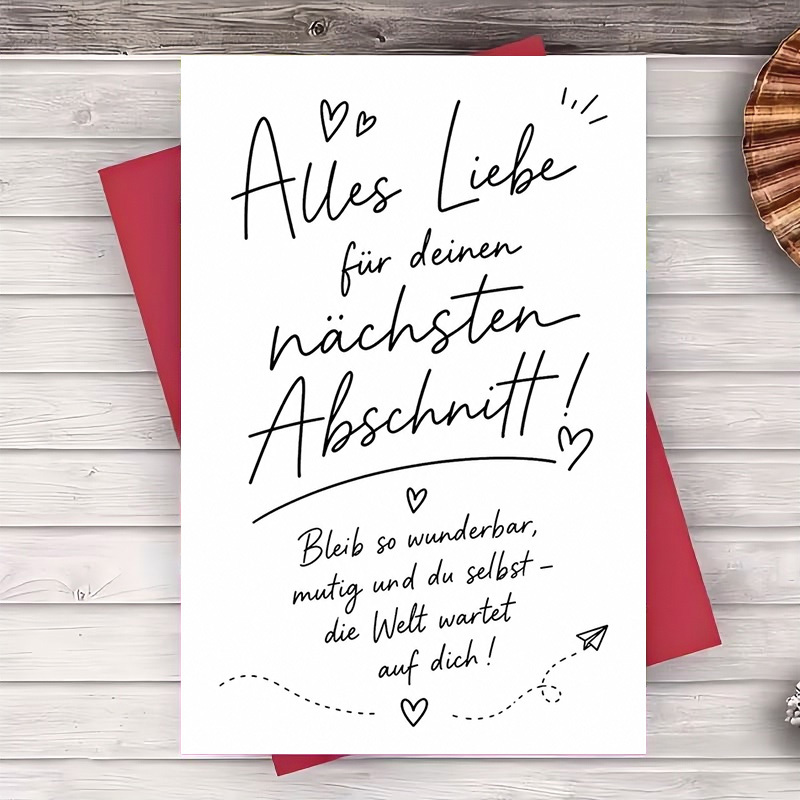 Alles Liebe
für deinen
nächsten
Abschnitt!
Bleib so wunderbar,
mutig und du selbst –
die Welt wartet
auf dich!